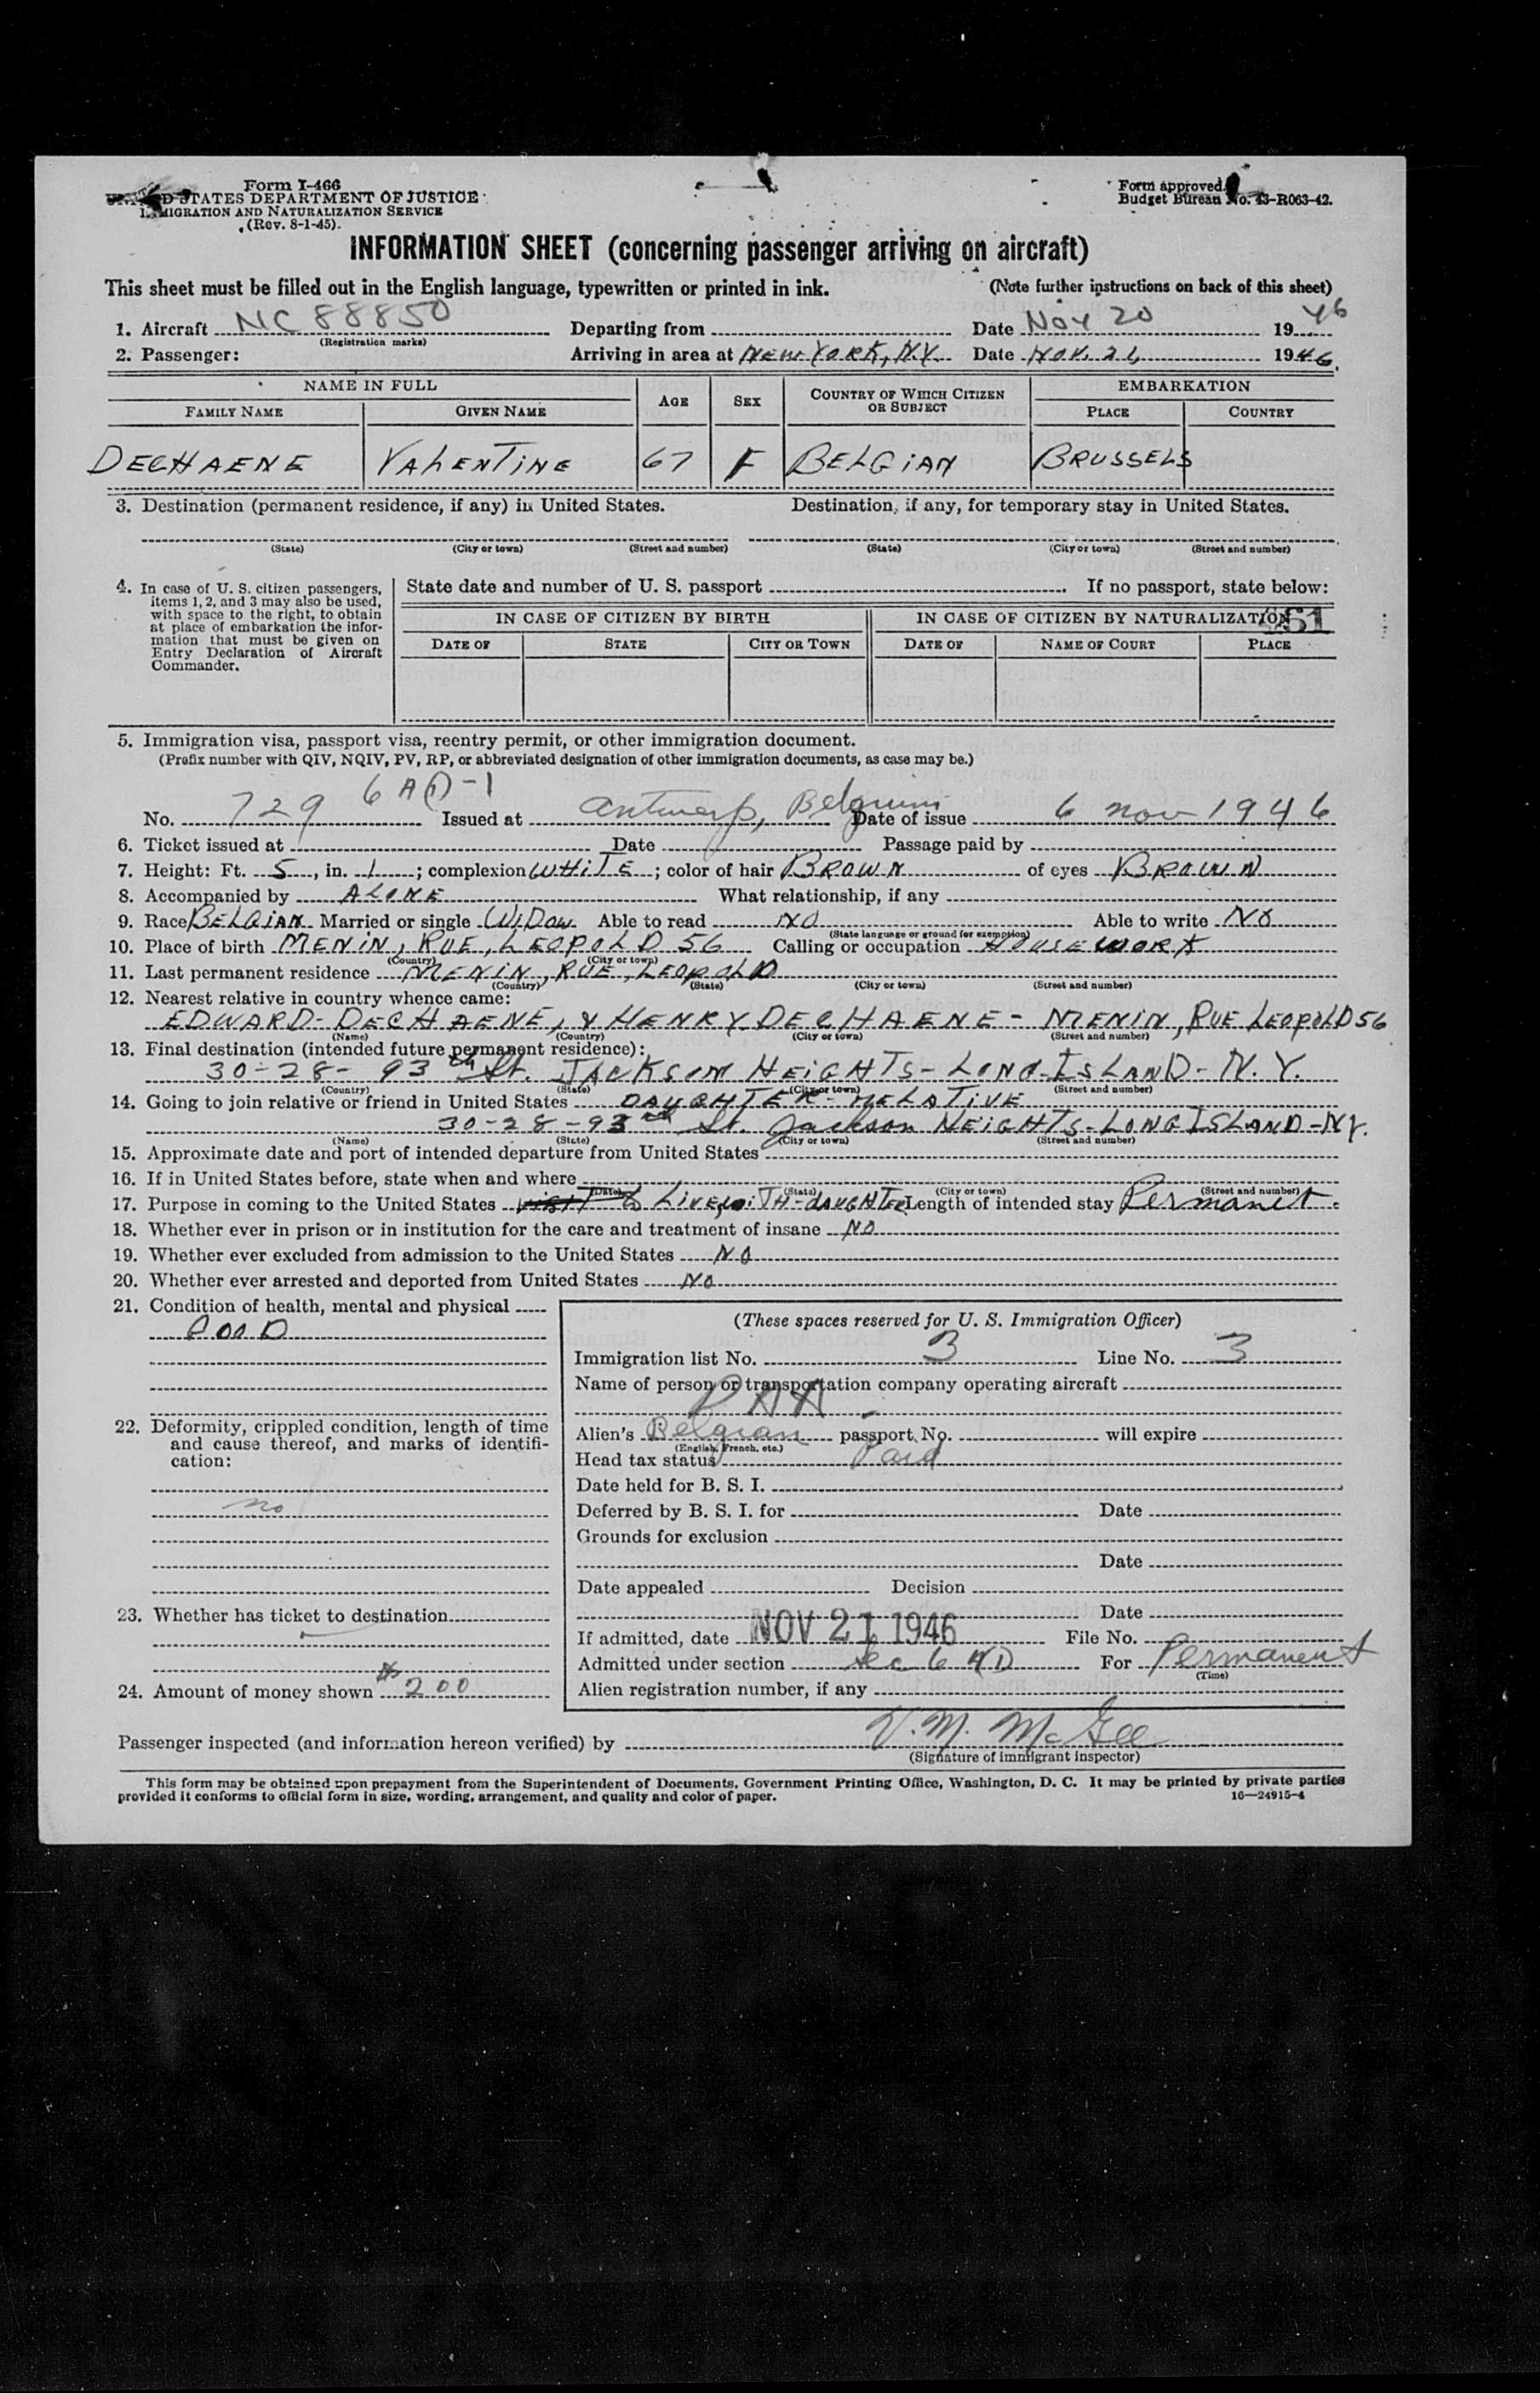 Form I-466
UNITED STATES DEPARTMENT OF JUSTICE
IMMIGRATION AND NATURALIZATION SERVICE
(Rev. 8-1-45)
Form approved.
Budget Bureau No. 43-R063-42.
INFORMATION SHEET (concerning passenger arriving on aircraft)
This sheet must be filled out in the English language, typewritten or printed in ink. (Note further instructions on back of this sheet)
1. Aircraft NC 88850 Departing from Date Nov 20 1946
(Registration marks)
2. Passenger: Arriving in area at NEW YORK, N.Y. Date NOV. 21 1946.
NAME IN FULL AGE SEX COUNTRY OF WHICH CITIZEN OR SUBJECT EMBARKATION
FAMILY NAME GIVEN NAME PLACE COUNTRY
DECHAENE VALENTINE 67 F BELGIAN BRUSSELS
3. Destination (permanent residence, if any) in United States. Destination, if any, for temporary stay in United States.
(State) (City or town) (Street and number) (State) (City or town) (Street and number)
4. In case of U. S. citizen passengers, items 1, 2, and 3 may also be used, with space to the right, to obtain at place of embarkation the information that must be given on Entry Declaration of Aircraft Commander.
State date and number of U. S. passport If no passport, state below:
IN CASE OF CITIZEN BY BIRTH IN CASE OF CITIZEN BY NATURALIZATION
DATE OF STATE CITY OR TOWN DATE OF NAME OF COURT PLACE
5. Immigration visa, passport visa, reentry permit, or other immigration document.
(Prefix number with QIV, NQIV, PV, RP, or abbreviated designation of other immigration documents, as case may be.)
6 A(1)-1
No. 729 Issued at Antwerp, Belgium Date of issue 6 Nov 1946
6. Ticket issued at Date Passage paid by
7. Height: Ft. 5, in. 1; complexion WHITE; color of hair BROWN of eyes BROWN
8. Accompanied by ALONE What relationship, if any
9. Race BELGIAN Married or single WIDOW Able to read NO Able to write NO
(State language or ground for exemption)
10. Place of birth MENIN, RUE, LEOPOLD 56 Calling or occupation HOUSEWORK
(Country) (City or town)
11. Last permanent residence MENIN, RUE, LEOPOLD
(Country) (State) (City or town) (Street and number)
12. Nearest relative in country whence came:
EDWARD-DECHAENE, & HENRY DECHAENE - MENIN, RUE LEOPOLD 56
(Name) (Country) (City or town) (Street and number)
13. Final destination (intended future permanent residence):
30-28- 93th St. JACKSON HEIGHTS-LONG-ISLAND-N.Y.
(Country) (State) (City or town) (Street and number)
14. Going to join relative or friend in United States DAUGHTER-RELATIVE
30-28-93rd St. Jackson HEIGHTS-LONG ISLAND-NY.
(Name) (State) (City or town) (Street and number)
15. Approximate date and port of intended departure from United States
16. If in United States before, state when and where
(Date) (State) (City or town) (Street and number)
17. Purpose in coming to the United States VISIT to LIVE WITH-DAUGHTER Length of intended stay Permanent
18. Whether ever in prison or in institution for the care and treatment of insane NO
19. Whether ever excluded from admission to the United States NO
20. Whether ever arrested and deported from United States NO
21. Condition of health, mental and physical
GOOD
22. Deformity, crippled condition, length of time and cause thereof, and marks of identification:
no
23. Whether has ticket to destination
24. Amount of money shown $200
(These spaces reserved for U. S. Immigration Officer)
Immigration list No. 3 Line No. 3
Name of person or transportation company operating aircraft
PAA
Alien's Belgian passport No. will expire
(English, French, etc.)
Head tax status Paid
Date held for B. S. I.
Deferred by B. S. I. for Date
Grounds for exclusion
Date
Date appealed Decision
Date
If admitted, date NOV 21 1946 File No.
Admitted under section Sec 6 A(1) For Permanent
(Time)
Alien registration number, if any
Passenger inspected (and information hereon verified) by V. M. McGee
(Signature of immigrant inspector)
This form may be obtained upon prepayment from the Superintendent of Documents, Government Printing Office, Washington, D. C. It may be printed by private parties
provided it conforms to official form in size, wording, arrangement, and quality and color of paper. 16—24915-4